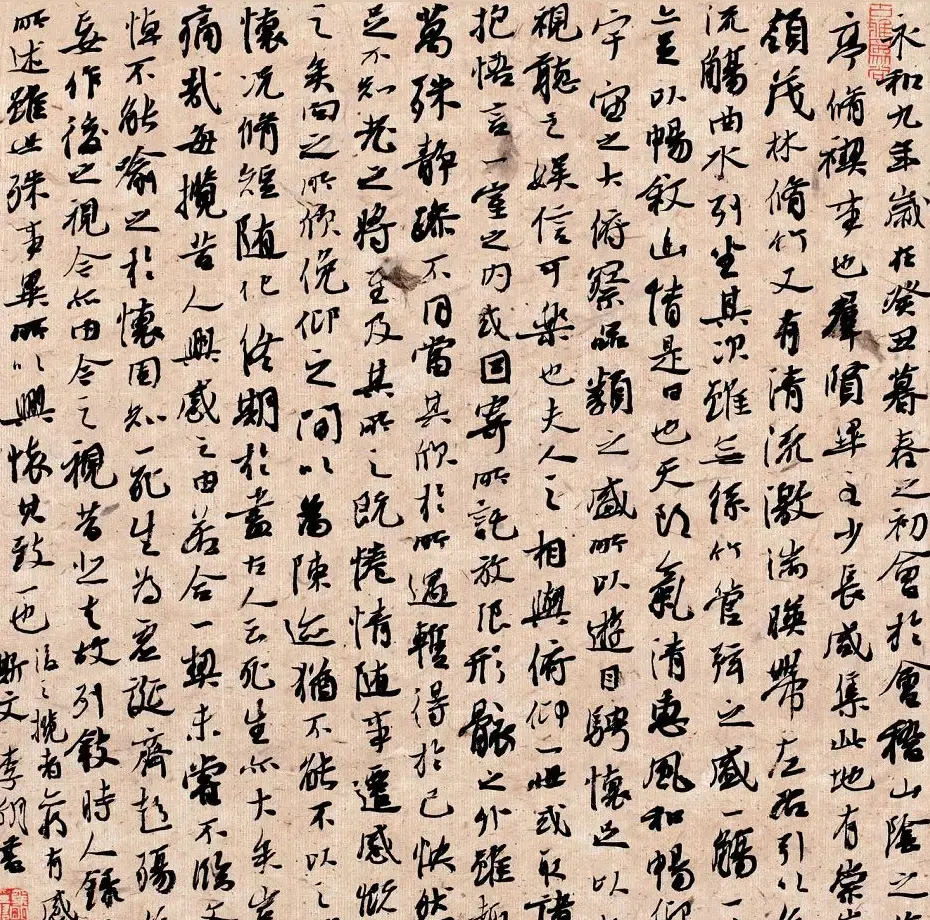 永和九年歲在癸丑暮春之初會於會稽山陰之
亭脩稧事也羣賢畢至少長咸集此地有崇
領茂林脩竹又有清流激湍暎帶左右引以
流觴曲水列坐其次雖無絲竹管弦之盛一觴
亦足以暢敘幽情是日也天朗氣清惠風和暢仰
宇宙之大俯察品類之盛所以遊目騁懷足以
視聽之娛信可樂也夫人之相與俯仰一世或取諸
抱悟言一室之內或因寄所託放浪形骸之外雖
萬殊靜躁不同當其欣於所遇暫得於己快然
足不知老之將至及其所之既惓情隨事遷感慨
之矣向之所欣俛仰之間以為陳迹猶不能不以之
懷況脩短隨化終期於盡古人云死生亦大矣豈
痛哉每攬昔人興感之由若合一契未嘗不臨文
悼不能喻之於懷固知一死生為虛誕齊彭殤
妄作後之視今亦由今之視昔悲夫故列敘時人錄
所述雖世殊事異所以興懷其致一也
後之攬者亦有感
斯文 李書